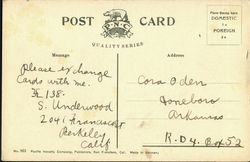 POST CARD
P.N.C.
QUALITY SERIES
Place Stamp here
DOMESTIC
1c
FOREIGN
2c
Message
Address
Please exchange
Cards with me.
138-
S. Underwood
2041 Francisco St
Berkeley
Calif
Cora Oden
Jonesboro
Arkansas
R.D4. Box 52
Pacific Novelty Company, Publishers, San Francisco, Cal. Made in Germany